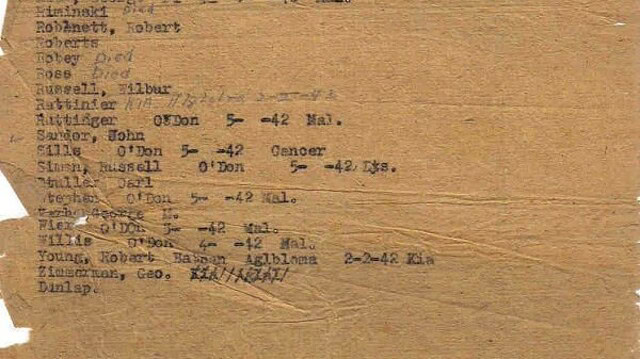 Riminski Died
Robinett, Robert
Roberts
Robey Died
Ross Died
Russell, Wilbur
Rattinier KIA
Ruttinger O'Don 5- -42 Mal.
Sandor, John
Sills O'Don 5- -42 Cancer
Simon, Russell O'Don 5- -42 Dys.
Stuller Carl
Stephan O'Don 5- -42 Mal.
George M.
Wier O'Don 5- -42 Mal.
Willis O'Don 4- -42 Mal.
Young, Robert Bataan Agloloma 2-2-42 Kia
Zimmerman, Geo.
Dunlap.